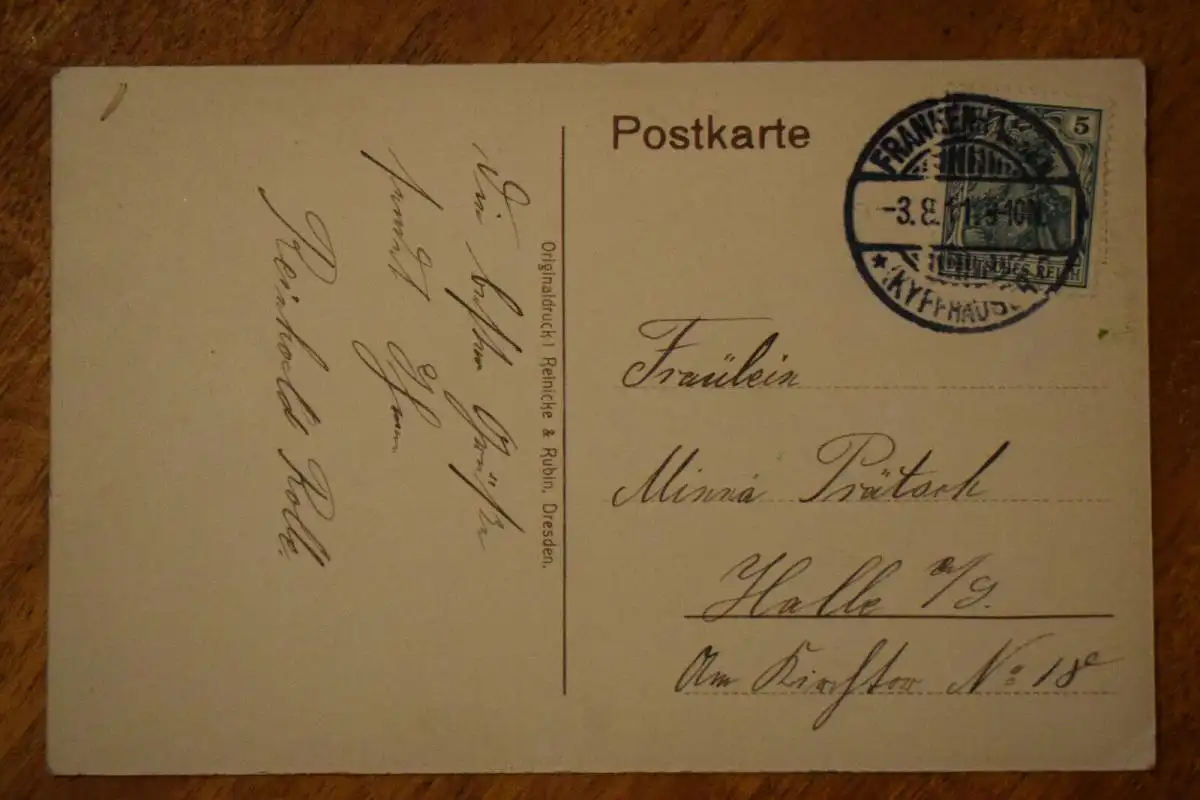 Postkarte
5
FRANKENH
-3.8.11. 9-10N.
DEUTSCHES REICH
(KYFFHÄUS
Fräulein
Minna Prätsch
Halle a/S.
Am Kirchtor No 18c
Originaldruck! Reinicke & Rubin, Dresden.
Die besten Grüße
sendet Ihnen
Reinhold Rolle.